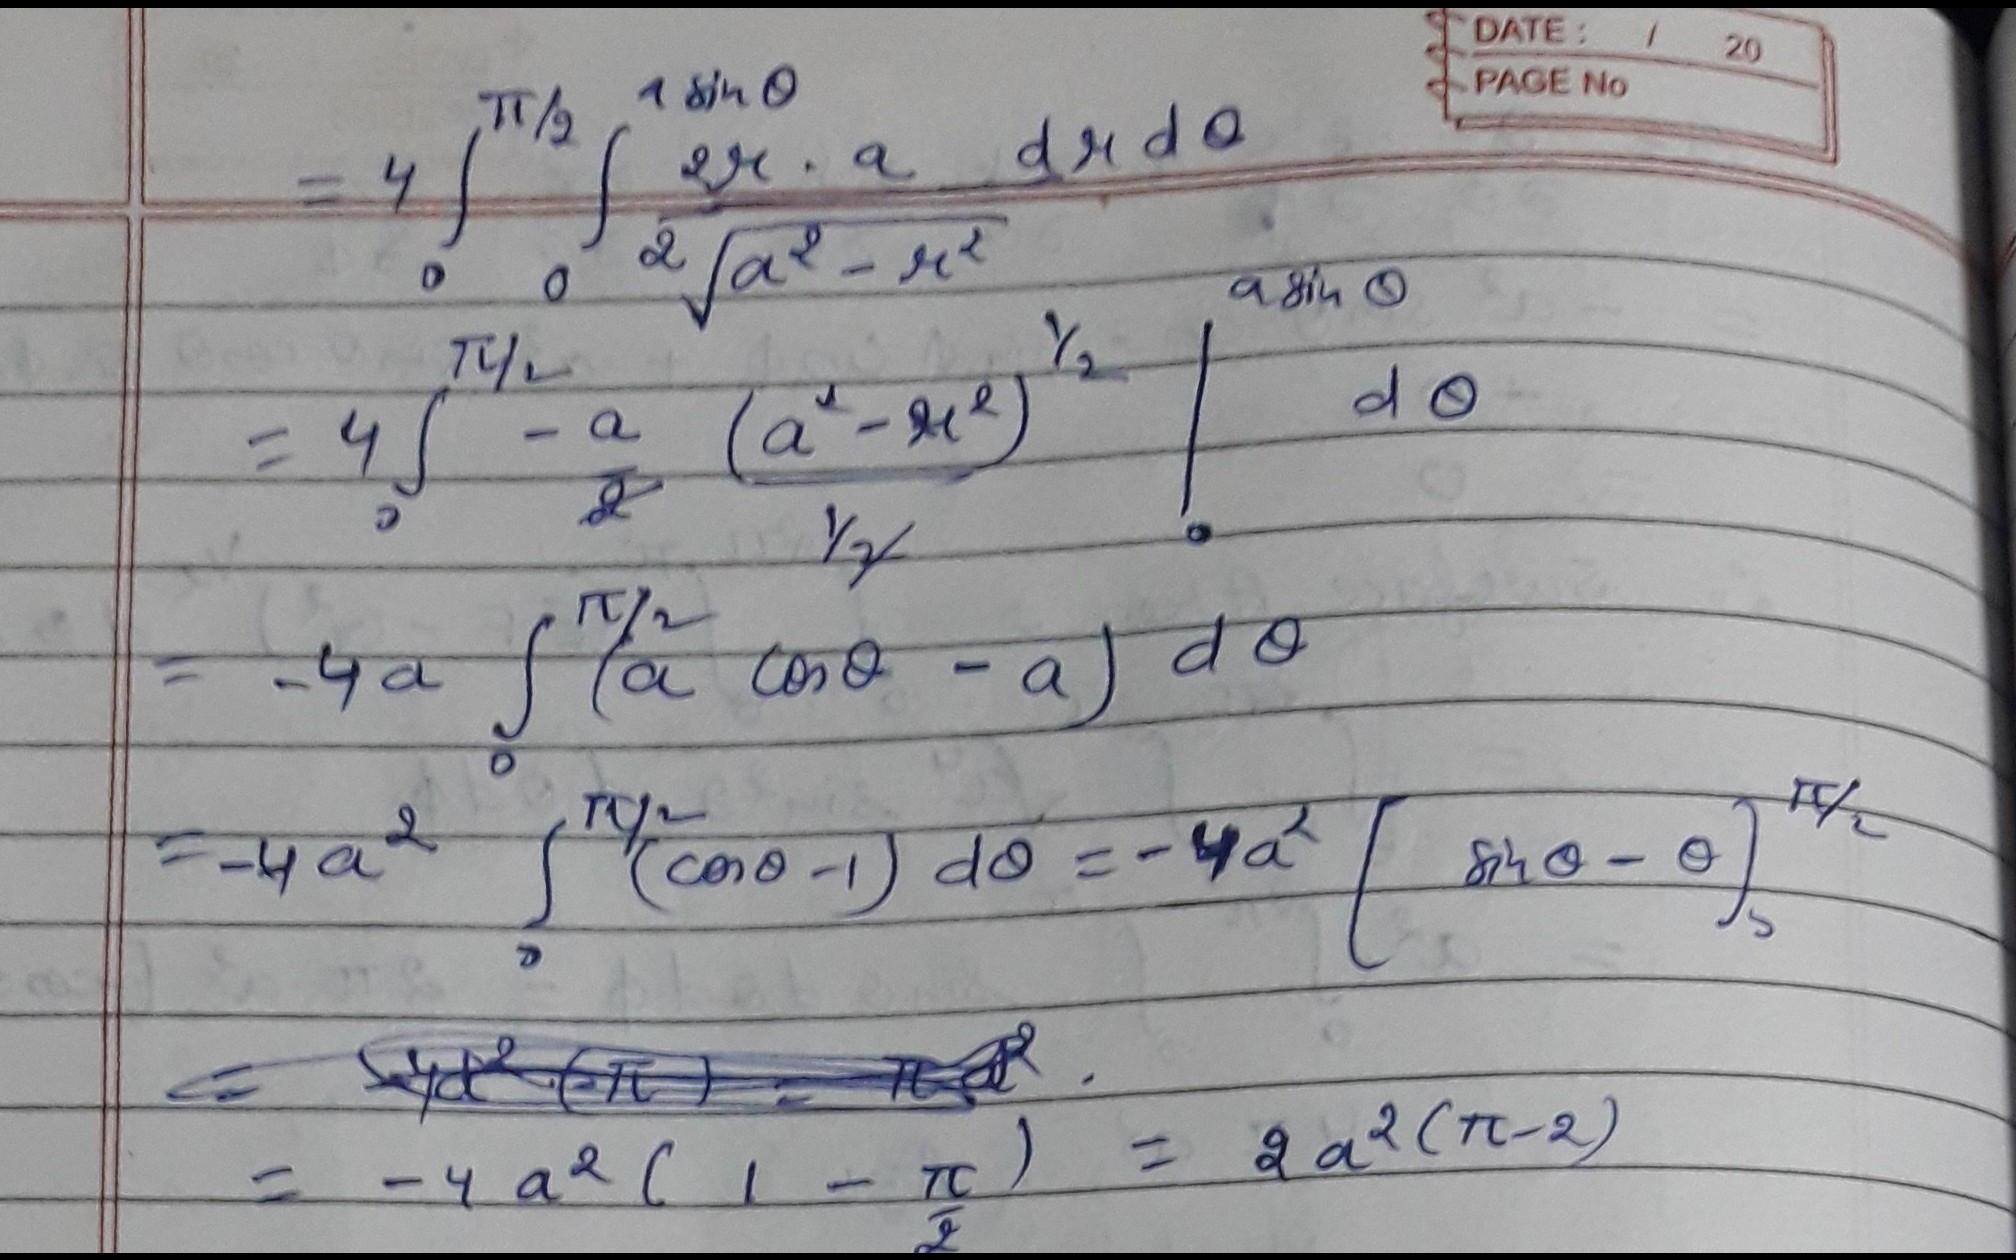 DATE: / 20
PAGE No
= 4 ∫₀^{π/2} ∫₀^{a sin θ} (2r · a)/(2√(a² - r²)) dr dθ
= 4 ∫₀^{π/2} -a/2 (a² - r²)^{1/2}/(1/2) |₀^{a sin θ} dθ
= -4a ∫₀^{π/2} (a cos θ - a) dθ
= -4a² ∫₀^{π/2} (cos θ - 1) dθ = -4a² [sin θ - θ]₀^{π/2}
=
= -4a² (1 - π/2) = 2a² (π - 2)